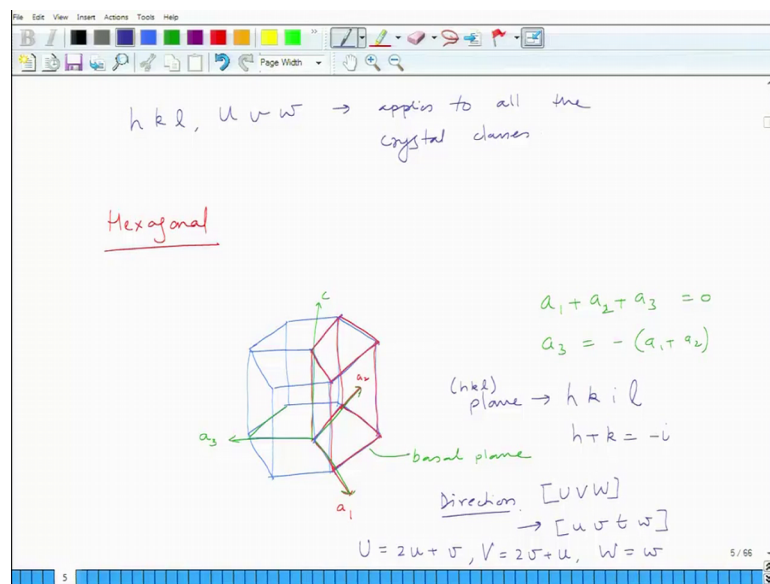 File Edit View Insert Actions Tools Help
B I
Page Width
h k l, u v w → applies to all the
crystal classes
Hexagonal
c
a₁ + a₂ + a₃ = 0
a₃ = - (a₁ + a₂)
a₂
(hkl)
plane → h k i l
h + k = -i
a₃
basal plane
a₁
Direction [U V W]
→ [u v t w]
U = 2u + v, V = 2v + u, W = w
5 / 66
5